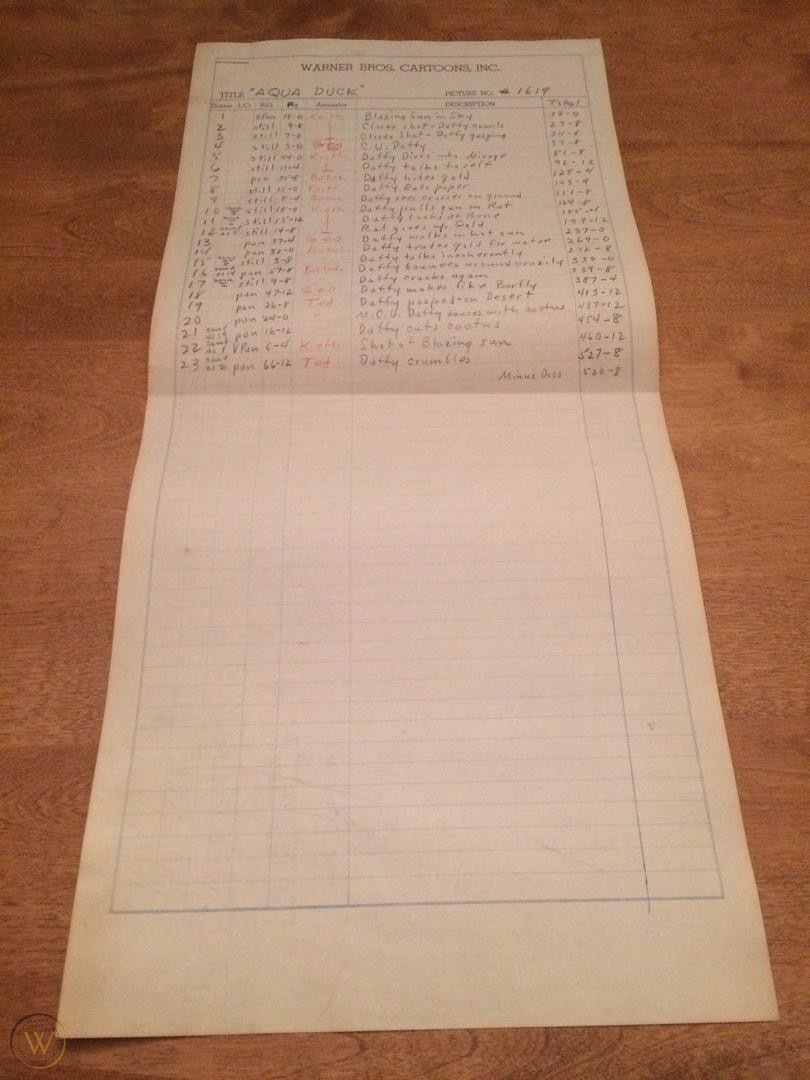 WARNER BROS. CARTOONS, INC.
TITLE "AQUA DUCK" PICTURE NO. # 1619
Scene LO. BG. Animator DESCRIPTION Total
1 V Pan 18-0 Keith Blazing Sun in Sky 18-0
2 still 9-8 Closer shot - Daffy crawls 27-8
3 still 7-0 Closer Shot - Daffy gasping 34-8
4 still 3-0 GEO C.U. Daffy 37-8
5 still 44-0 Keith Daffy Dives into Mirage 81-8
6 still 11-4 Daffy talks to self 92-12
7 pan 35-8 Batch Daffy hides gold 128-4
8 still 15-0 Daffy Eats paper 143-4
9 still 8-4 Daffy sees on ground 151-8
10 still 18-0 Keith Daffy pulls gun on Rat
11 still 15-12 Daffy looks at Bone 199-12
12 still 14-8 Rat gives up Gold
13 pan 37-4 GEO Daffy walks in hot sun 237-0
14 pan 32-0 Batch Daffy trades gold for water 269-0
15 still 3-8 Daffy talks incoherently 272-8
16 pan 57-8 Batch Daffy bounces around crazily 330-0
17 still 9-8 Daffy cracks again 339-8
18 pan 47-12 GEO Daffy makes like Barfly 387-4
19 pan 26-8 Ted Daffy pooped-on Desert 413-12
20 pan 24-0 " M.C.U. Daffy dances with cactus 437-12
21 same as 19 pan 16-12 Daffy cuts cactus 454-8
22 same as 1 V Pan 6-4 Kieth Shot of Blazing sun 460-12
23 same as 2 pan 66-12 Ted. Daffy crumbles 527-8
Minus Diss 520-8
W